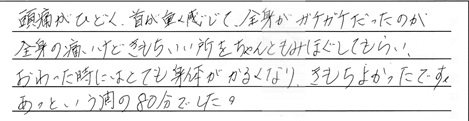 頭痛がひどく、首が重く感じて、全身がガチガチだったのが
全身の痛いけどきもちいい所をちゃんともみほぐしてもらい、
おわった時にはとても身体がかるくなり、きもちよかったです。
あっという間の80分でした。